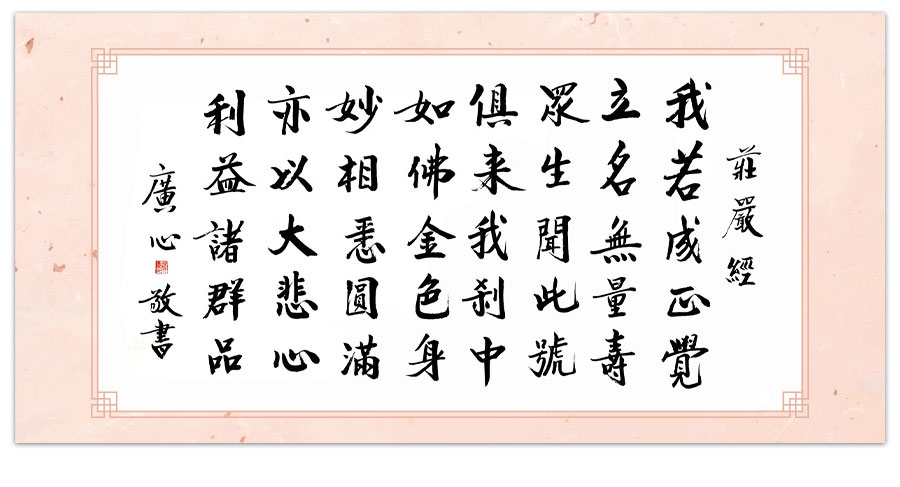 莊嚴經
我若成正覺
立名無量壽
眾生聞此號
俱来我刹中
如佛金色身
妙相悉圓滿
亦以大悲心
利益諸群品
廣心敬書